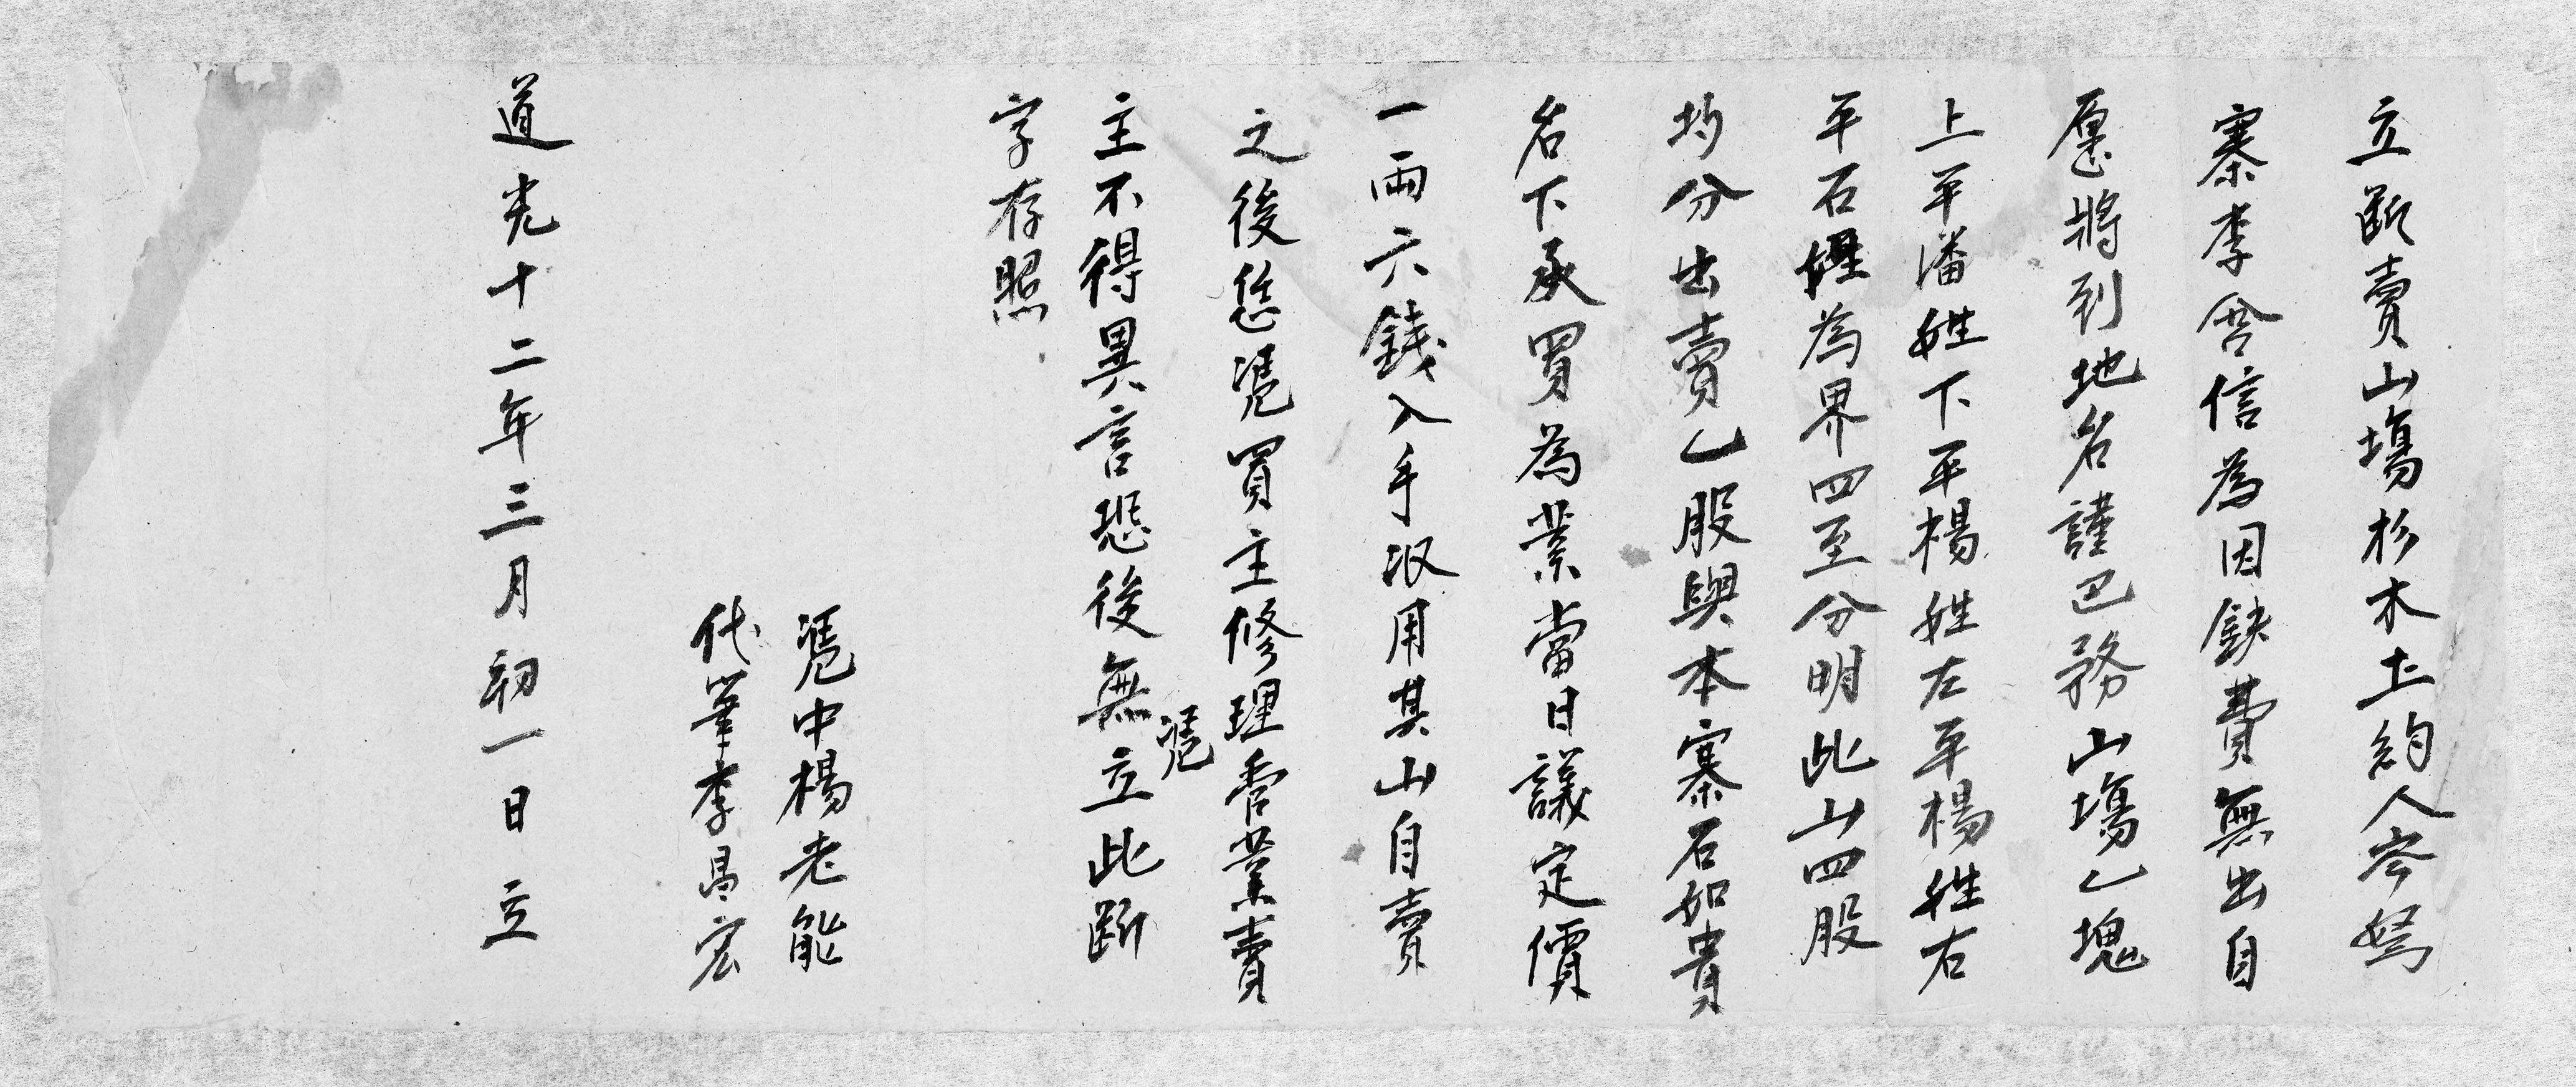 立斷賣山塲杉木土約人岑努
寨李含信為因缺費無出自
愿將到地名謹巴務山塲乙塊
上平潘姓下平楊姓左平楊姓右
平石姓為界四至分明此山四股
均分出賣乙股與本寨石如貴
名下承買為業當日議定價
一兩六錢入手收用其山自賣
之後恁凴買主修理管業賣
主不得異言恐後無凴立此斷
字存照
凴中楊老能
代筆李昌宏
道光十二年三月初一日立